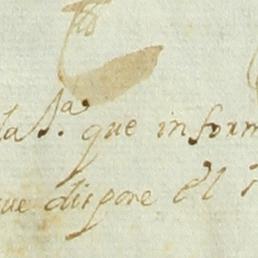 la S.ª que inform
ue dispone el